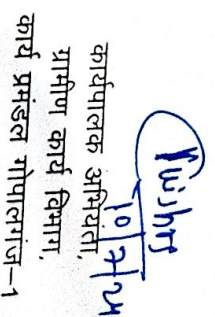 10/7/24
कार्यपालक अभियंता,
ग्रामीण कार्य विभाग,
कार्य प्रमंडल गोपालगंज-1